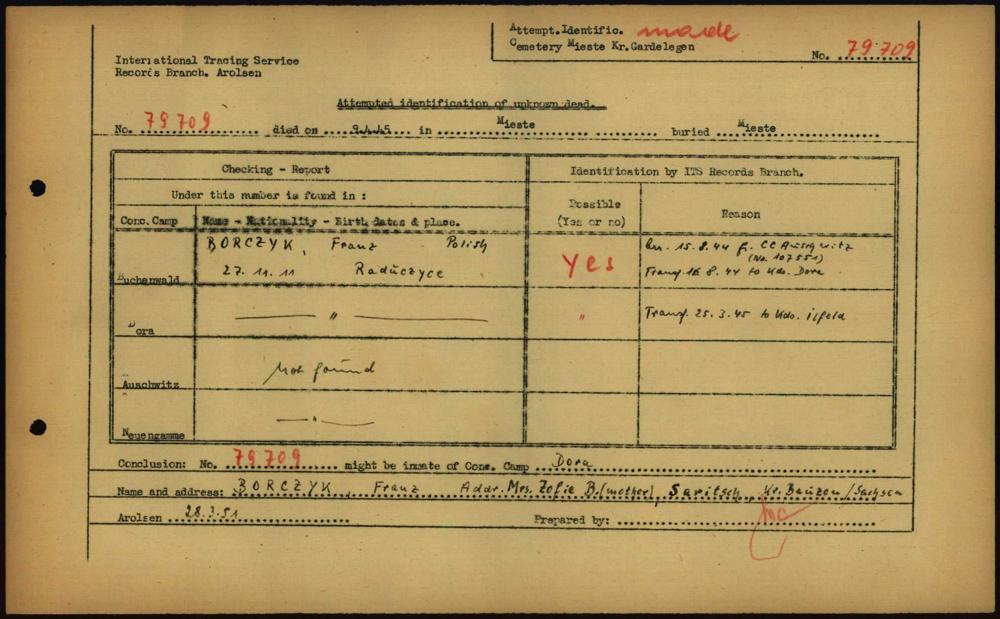 Attempt.Identific. made
Cemetery Mieste Kr.Gardelegen
No. 79 709
International Tracing Service
Records Branch, Arolsen
Attempted identification of unknown dead.
No. 79709 died on 9.4.45 in Mieste buried Mieste
Checking - Report
Identification by ITS Records Branch.
Under this number is found in :
Possible
(Yes or no)
Reason
Conc. Camp
Name - Nationality - Birth dates & place.
Buchenwald
BORCZYK, Franz Polish
27. 11. 11 Raduczyce
Yes
15.8.44 fr. CC Auschwitz
(No. 107551)
Transf. 16 8. 44 to Kdo. Dora
Dora
— " —
"
Transf. 25. 3. 45 to Kdo. Ilfeld
Auschwitz
Not found
Neuengamme
— " —
Conclusion: No. 79709 might be inmate of Conc. Camp Dora
Name and address: BORCZYK, Franz Addr. Mrs. Zofie B. (mother), Saritsch, Kr. Bauzen/Sachsen
Arolsen 28.3.51
Prepared by: